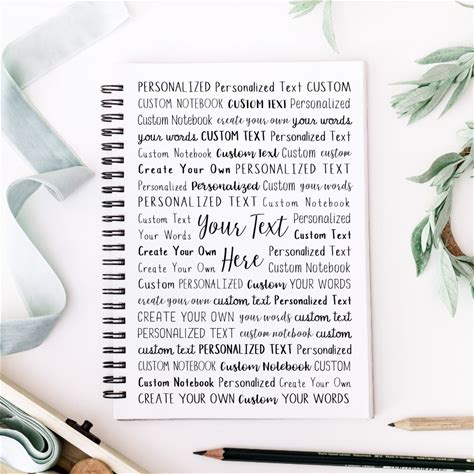 PERSONALIZED Personalized Text CUSTOM
CUSTOM NOTEBOOK CUSTOM TEXT Personalized
Custom Notebook create your own your words
your words CUSTOM TEXT Personalized Text
Custom Notebook Custom text Custom custom
Create Your Own PERSONALIZED Your Words
Personalized Personalized Custom your words
PERSONALIZED Custom Text CUSTOM NOTEBOOK
Custom Text Your Text Personalized
Your Words Custom Text
Create Your Own Here Personalized Text
Create Your Own Custom Notebook
Custom PERSONALIZED Custom YOUR WORDS
create your own custom text Personalized Text
CREATE YOUR OWN your words Custom Text
PERSONALIZED TEXT custom notebook custom
custom text PERSONALIZED TEXT CUSTOM TEXT
CREATE YOUR OWN Custom Notebook CUSTOM
Custom Notebook Personalized Create Your Own
CREATE YOUR OWN Custom YOUR WORDS